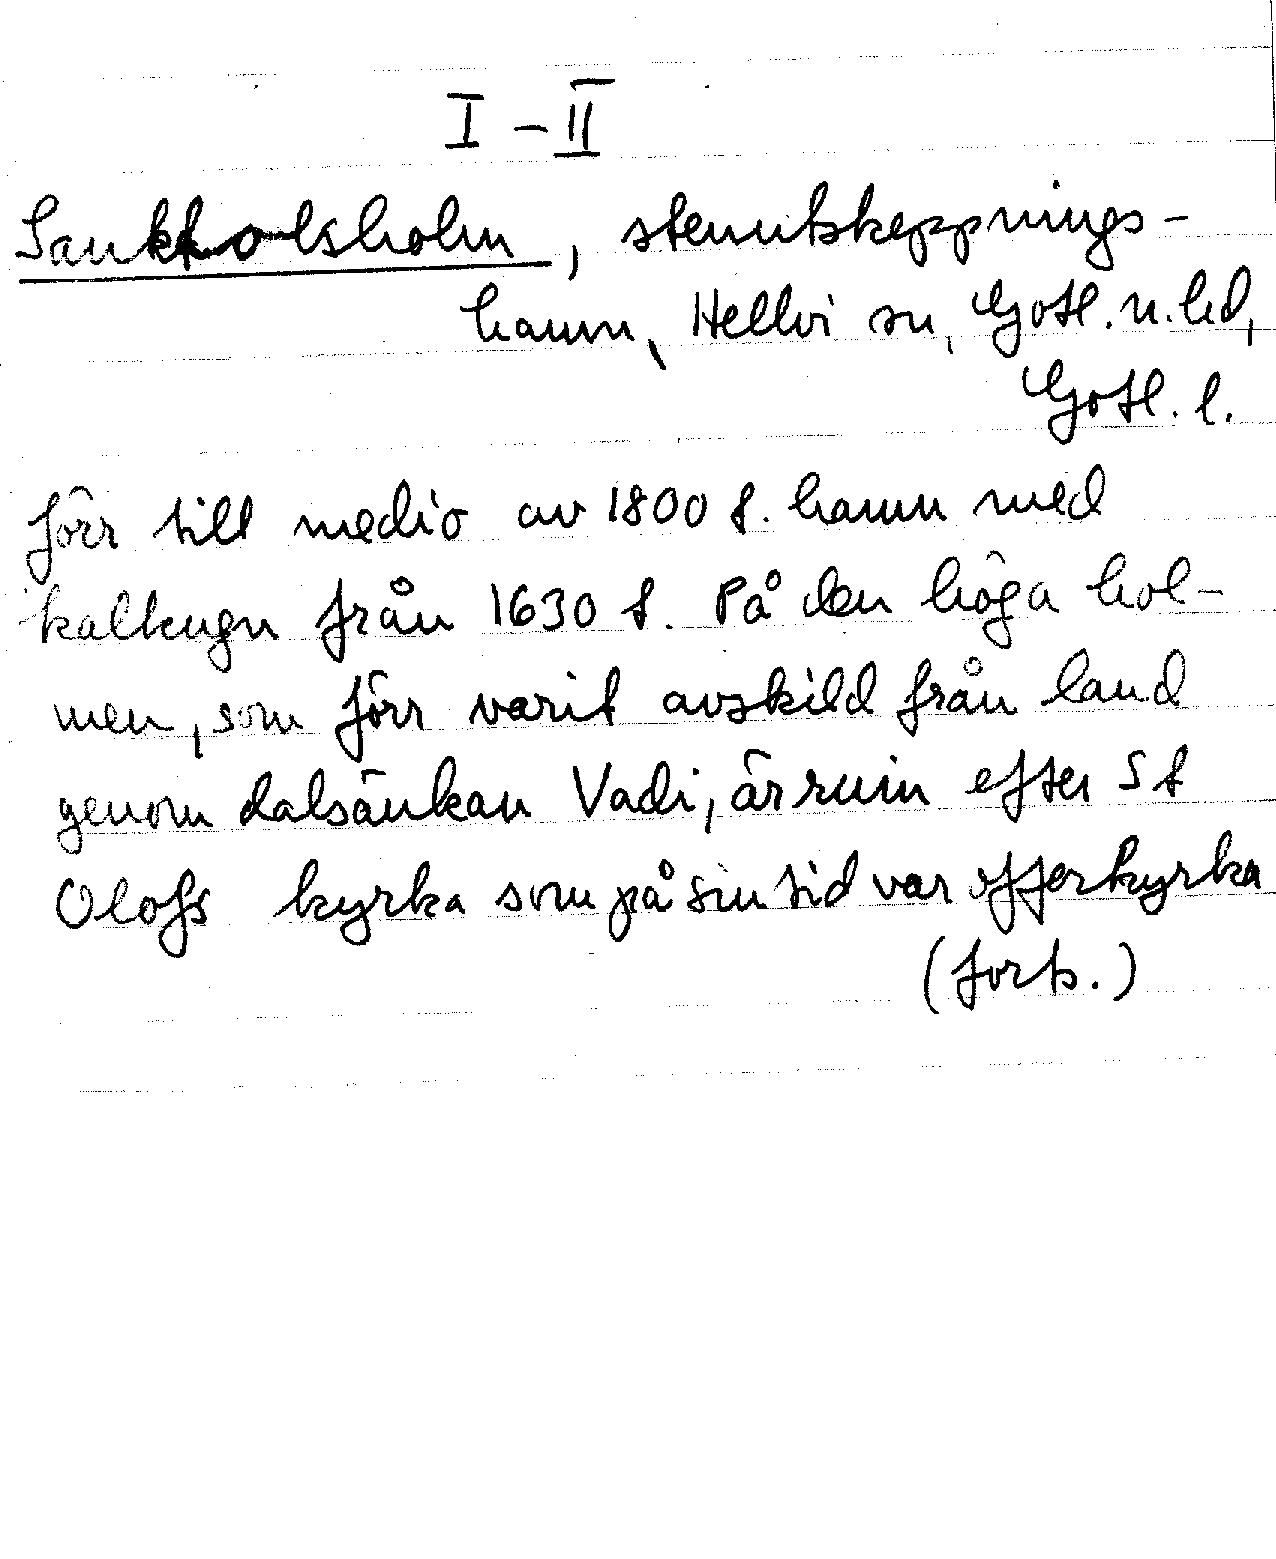 I - II
Sanktolsholm, stenutskeppnings-
hamn, Hellvi sn, Gotl. n. hd,
Gotl. l.
förr till medio av 1800 t. hamn med
kalkugn från 1630 t. På den höga hol-
men, som förr varit avskild från land
genom dalsänkan Vadi, är ruin efter St
Olofs kyrka som på sin tid var offerkyrka
(forts.)